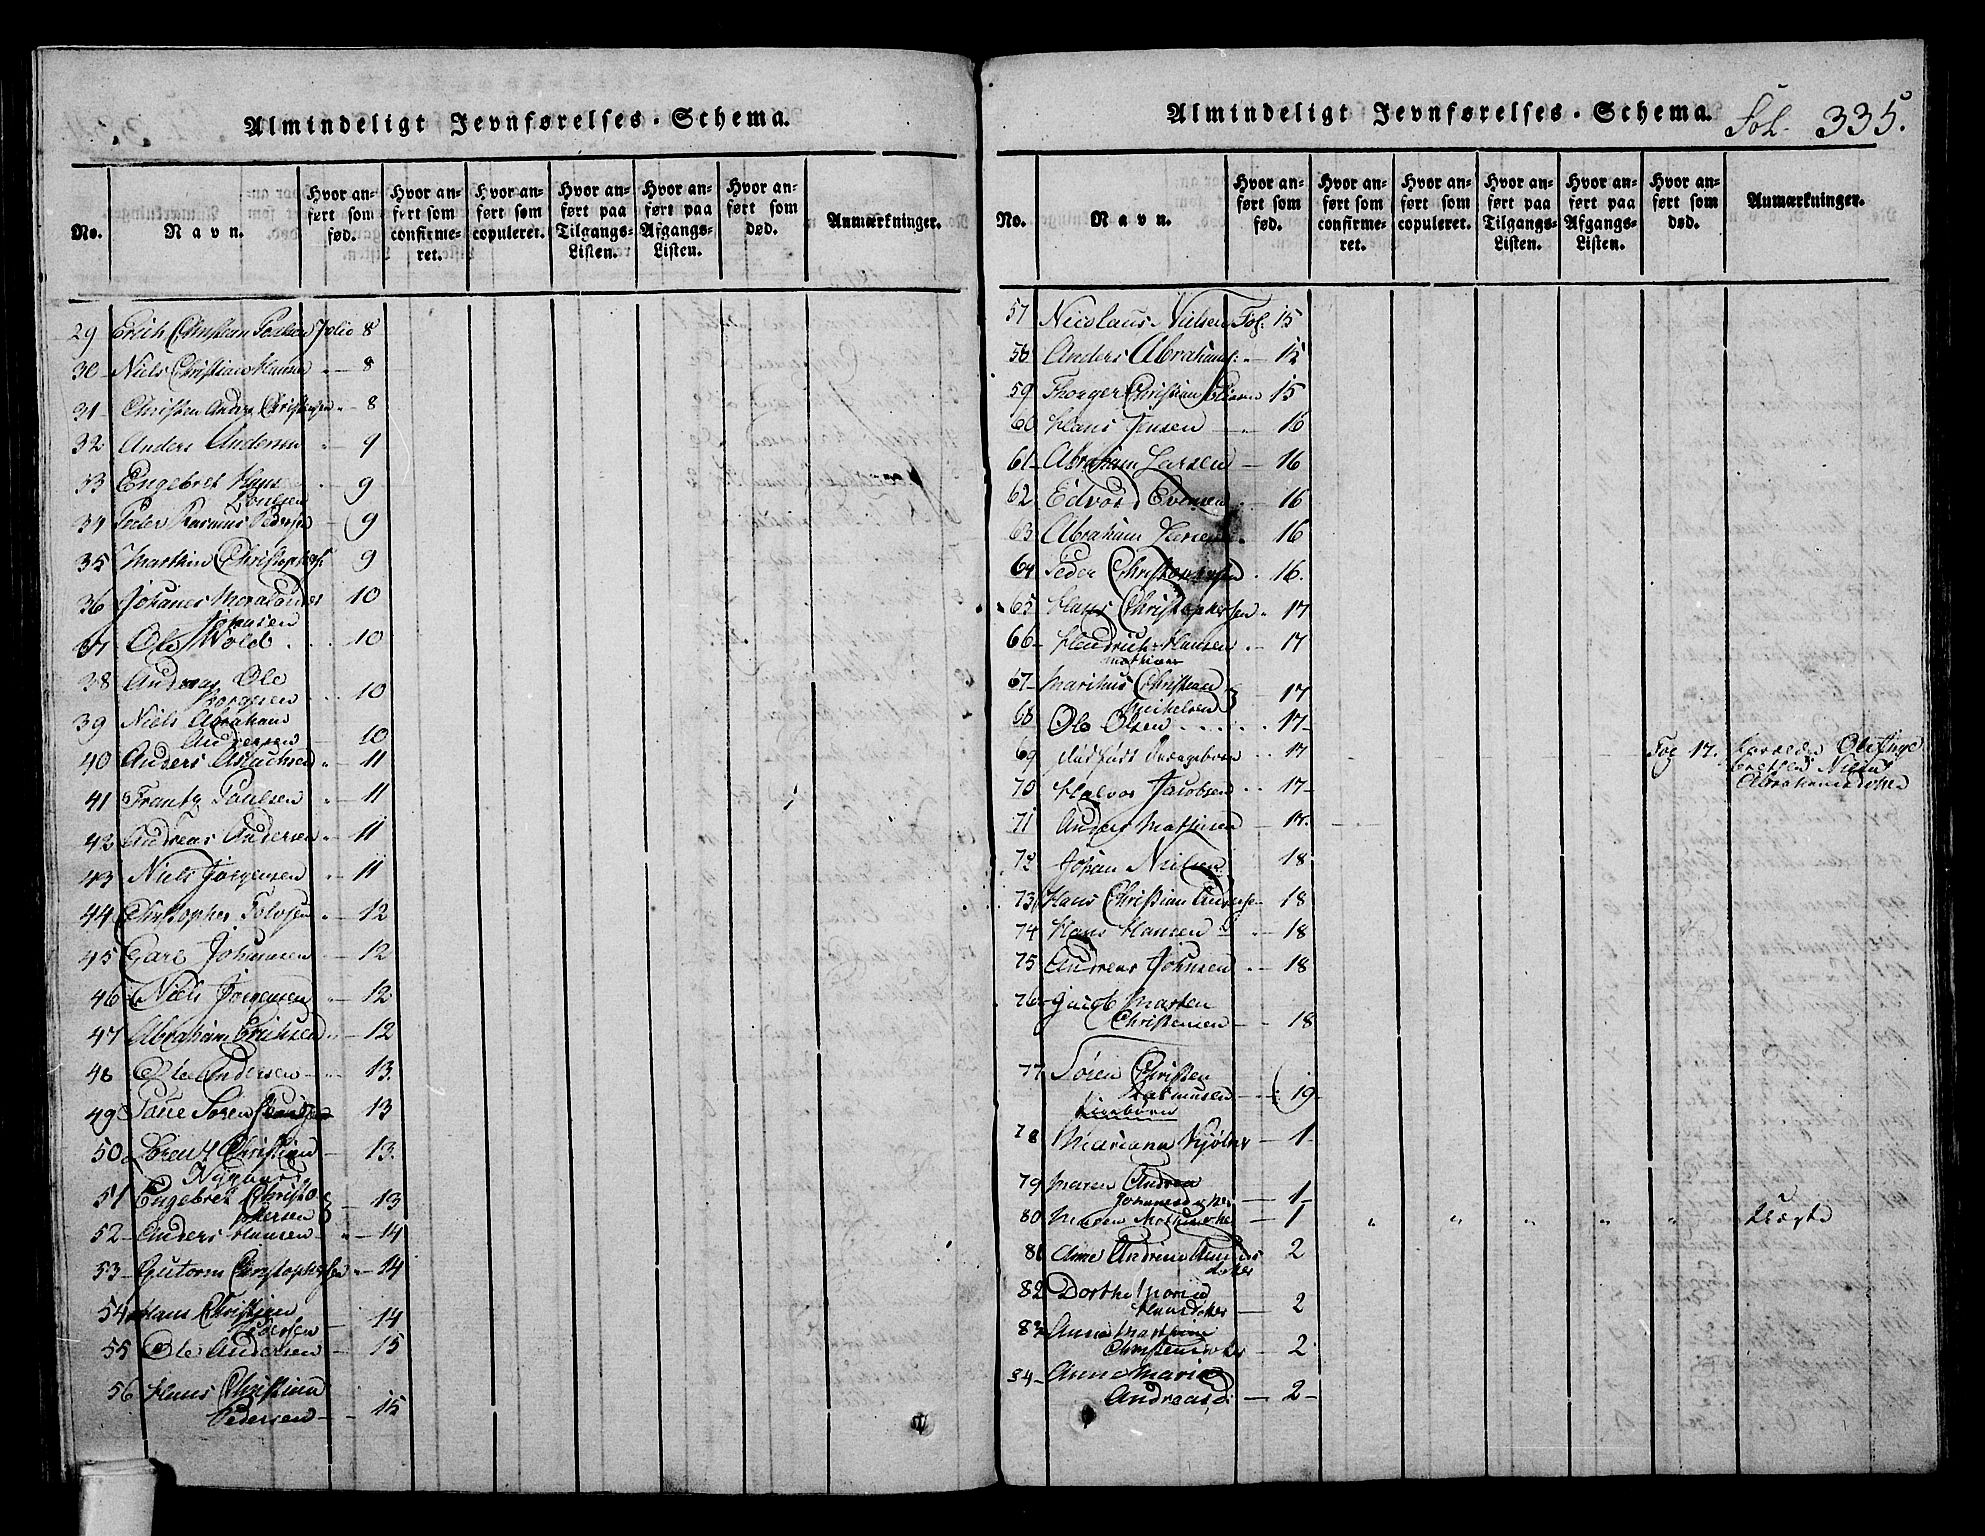 Almindeligt Jevnførelses-Schema.
No.
Navn.
Hvor anført som fød.
Hvor anført som confirmeret.
Hvor anført som copuleret.
Hvor anført paa Tilgangs-Listen.
Hvor anført paa Afgangs-Listen.
Hvor anført som død.
Anmærkninger.
29 Erich Christian Poulsen Folio 8
30 Niels Christian Hansen 8
31 Christen Andre Christensen 8
32 Anders Andersen 9
33 Engebret Hans
Poulsen 9
34 Peder Rasmus Peders 9
35 Marthin Christophers 9
36 Johanes
Johnsen 10
37 Ole Wold 10
38 Andreas Ole
Borgesen 10
39 Niels Abraham
Andersen 10
40 Anders Isachsen 11
41 Frantz Poulsen 11
42 Andreas Andersen 11
43 Niels Jørgensen 11
44 Christopher Tolvsen 12
45 Carl Johannsen 12
46 Niels Jørgensen 12
47 Abraham Erichsen 12
48 Ole Andersen 13
49 Paul Søren 13
50 Lorentz Christian
Nygaard 13
51 Engebret Christo-
phersen 13
52 Anders Hansen 14
53 Gutorm Christophersen 14
54 Hans Christian
Pedersen 14
55 Ole Andersen 15
56 Hans Christian
Pedersen 15
Almindeligt Jevnførelses-Schema.
Fol. 335.
No.
Navn.
Hvor anført som fød.
Hvor anført som confirmeret.
Hvor anført som copuleret.
Hvor anført paa Tilgangs-Listen.
Hvor anført paa Afgangs-Listen.
Hvor anført som død.
Anmærkninger.
57 Nicolaus Nielsen Fol. 15
58 Anders Abrahams: 15
59 Thorger Christian 15
60 Hans Jensen 16
61 Abraham Larsen 16
62 Edvard Evensen 16
63 Abraham 16
64 Peder Christophersen 16.
65 Hans Christophersen 17
66 Hendrich Hansen 17
Mathias
67 Marthus Christian
Michelsen 17
68 Ole Olsen 17
69 17 Fol 17. Ole Inge
bretsen Niels
Abrahamsdotter
70 Halvor Jacobsen 17
71 Anders Mathisen 17.
72 Johan Nielsen 18
73 Hans Christian Anderse 18
74 Hans Hansen 18
75 Andreas Johnsen 18
76 Jacob Marten
Christensen 18
77 Søren Christen
Rasmusen 19
78 Mariana 1
79 Maren Andrea
1
80 Maren 1 " " " " "
81 Ane Andrine
2
82 Dorthe
Hansdotter 2
83 Anna Marthine
Christensdotter 2
84 Anne Maria
Andreasd: 2